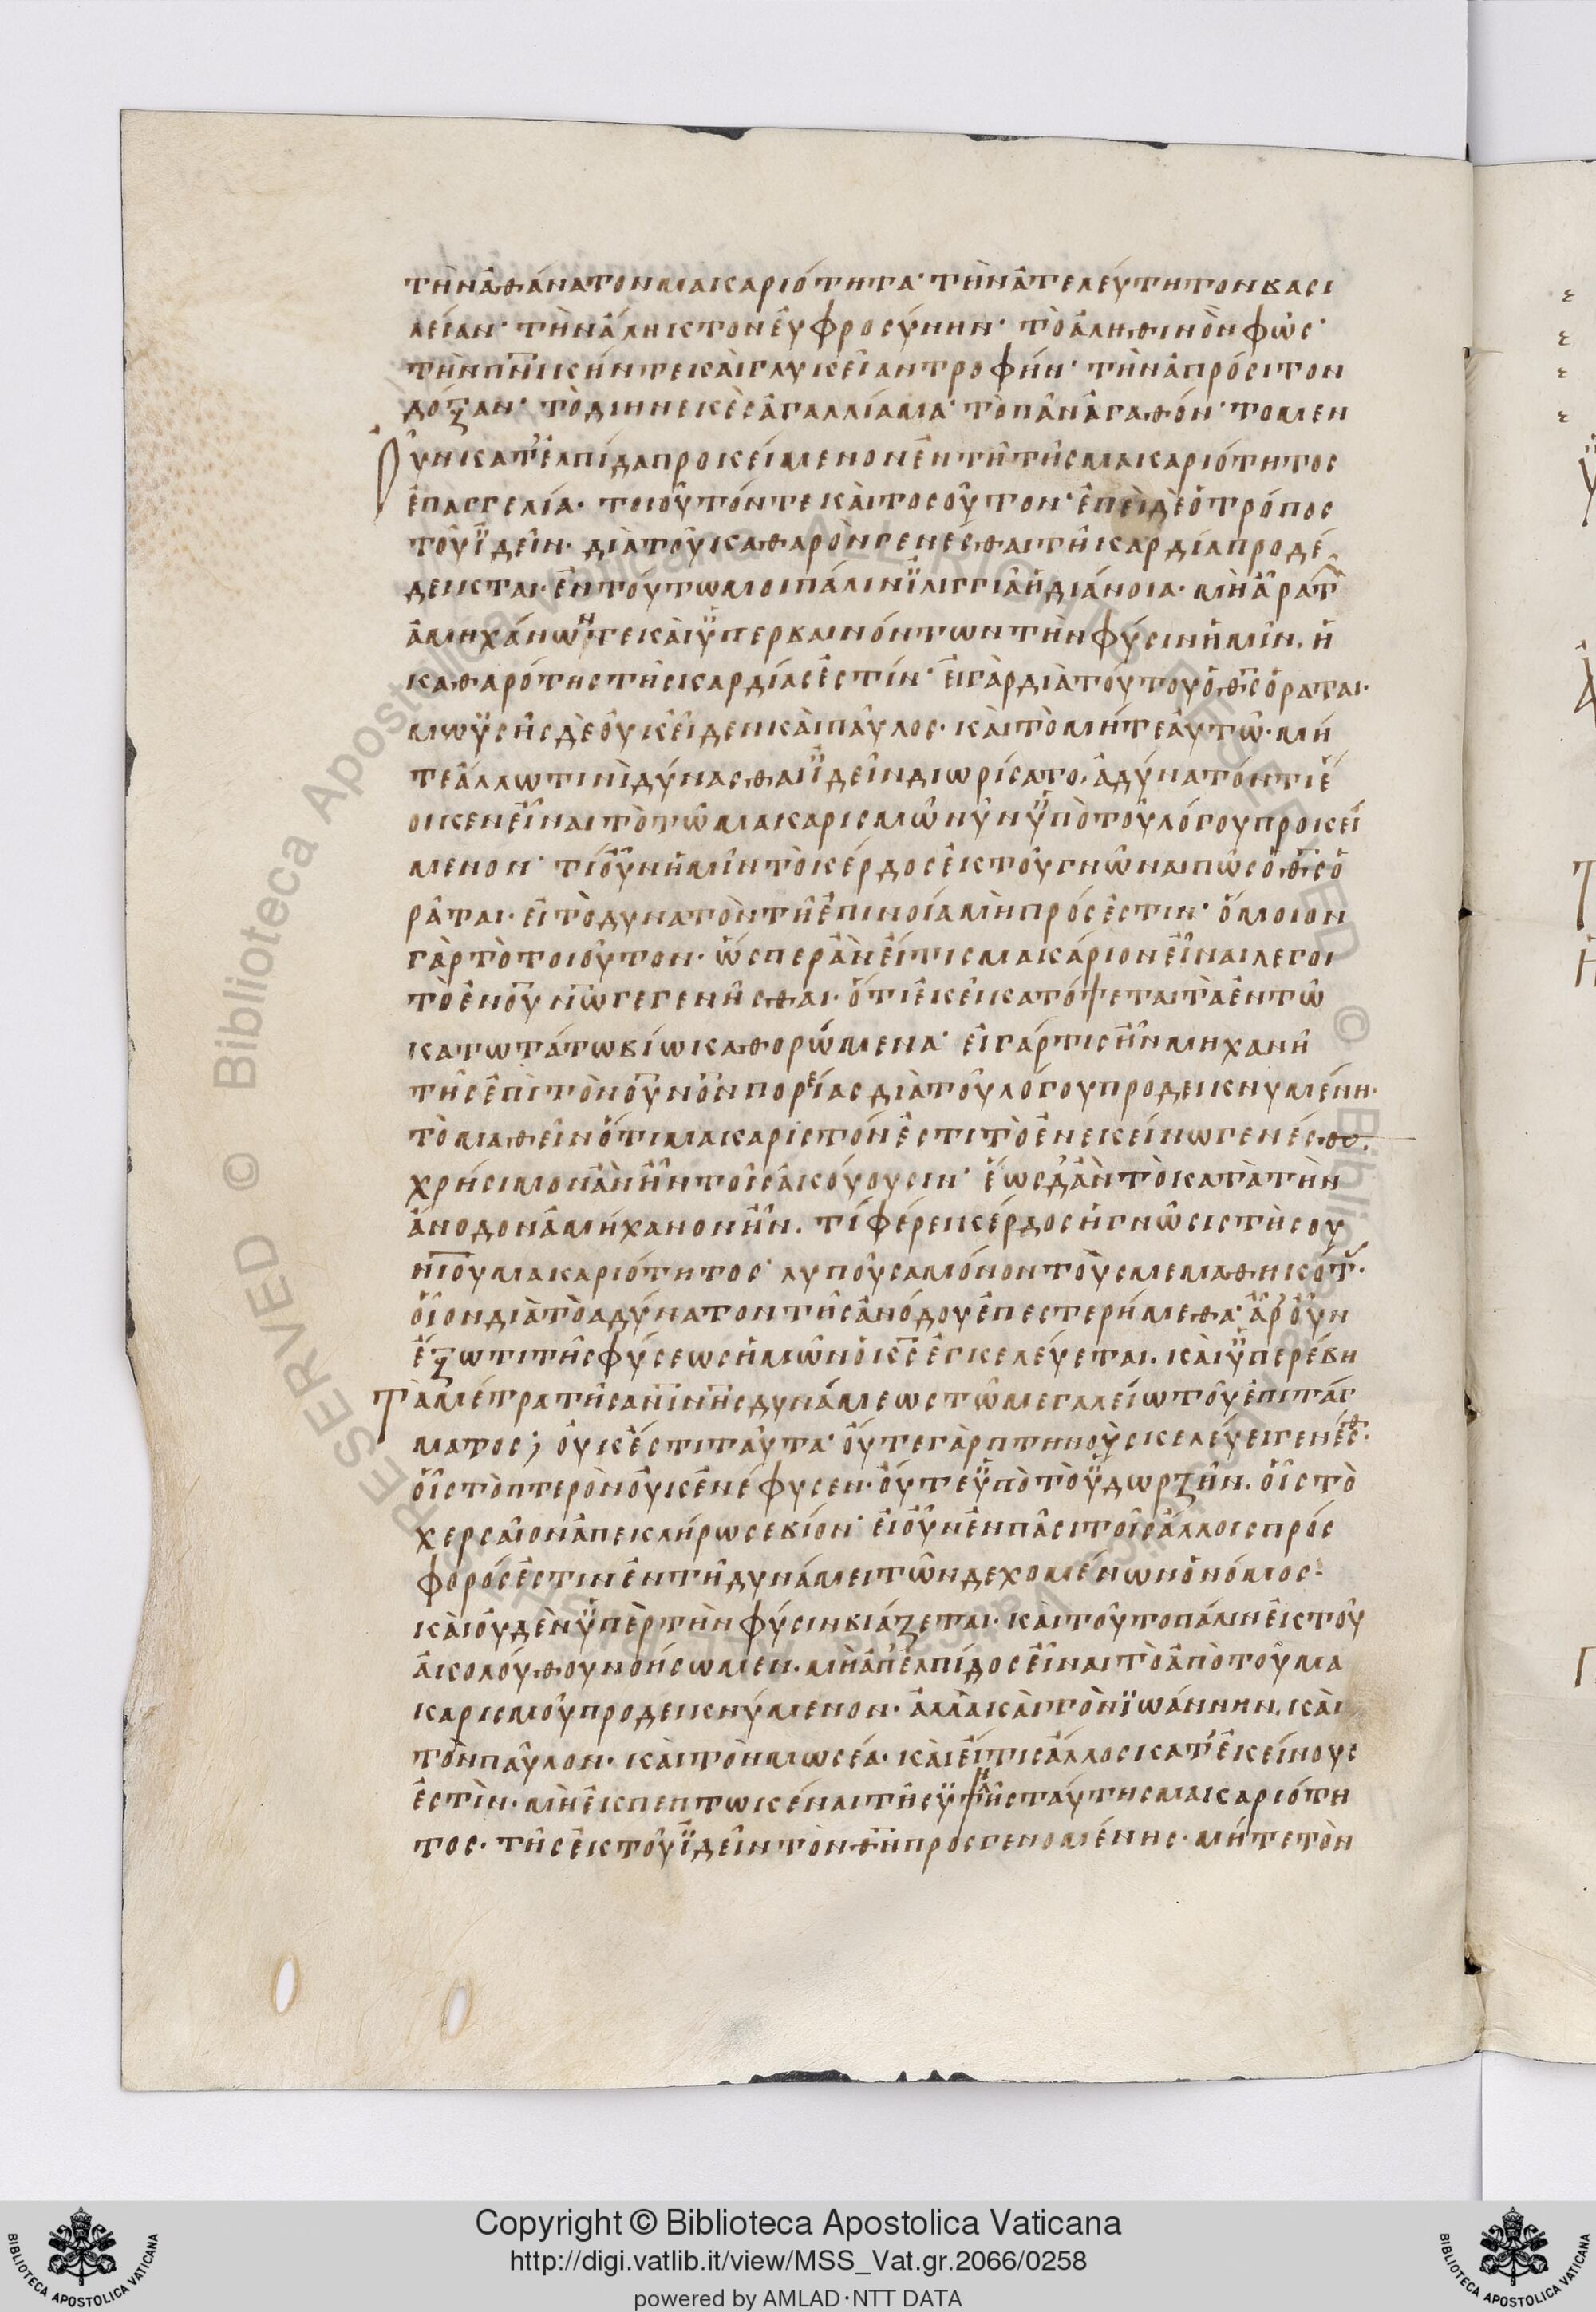 τὴν ἀθάνατον μακαριότητα· τὴν ἀτελεύτητον βασι
λείαν· τὴν ἄληκτον εὐφροσύνην· τὸ ἀληθινὸν φῶς·
τὴν πν̅ικήν τε καὶ γλυκεῖαν τροφήν· τὴν ἀπρόσιτον
δόξαν· τὸ διηνεκὲς ἀγαλλίαμα· τὸ πᾶν ἀγαθόν· τὸ μὲν
οὖν κατ' ἐλπίδα προκείμενον ἐν τῇ τῆς μακαριότητος
ἐπαγγελία· τοιοῦτόν τε καὶ τοσοῦτον· ἐπεὶ δὲ ὁ τρόπος
τοῦ ἰδεῖν· διὰ τοῦ καθαρὸν γενέσθαι τῇ καρδία προδέ
δεικται· ἐν τούτω μοι πάλιν ἰλιγγιᾶ ἡ διάνοια· μὴ ἄρα τ
ἀμηχάνων τε καὶ ὑπερβαινόντων τὴν φύσιν ἡμῖν. ἡ
καθαρότης τῆς καρδίας ἐστίν· εἰ γὰρ διὰ τούτου ὁ θ̅ς ὁρᾶται·
μωϋσῆς δὲ οὐκ εἶδεν καὶ παῦλος· καὶ τὸ μήτε αὐτῶ· μή
τε ἄλλω τινὶ δύνασθαι ἰδεῖν διωρίσατο. ἀδύνατόν τι ἔ
οικεν εἶναι τὸ τῶ μακαρισμῶ νῦν ὑπὸ τοῦ λόγου προκεί
μενον· τί οὖν ἡμῖν τὸ κέρδος ἐκ τοῦ γνῶναι πῶς ὁ θ̅ς ὁ
ρᾶται· εἰ τὸ δυνατὸν τῇ ἐπινοία μὴ πρόσεστιν· ὅμοιον
γὰρ τὸ τοιοῦτον· ὥσπερ ἂν εἴ τις μακάριον εἶναι λέγοι
τὸ ἐν οὐν̅ω γεγενῆσθαι· ὅτι ἐκεῖ κατόψεται τὰ ἐν τῶ
κατωτάτω βίω καθορώμενα· εἰ γάρ τις ἦν μηχανὴ
τῆς ἐπὶ τὸν οὐν̅ον πορείας διὰ τοῦ λόγου προδεικνυμένη·
τὸ μαθεῖν ὅτι μακαριστόν ἐστι τὸ ἐν ἐκείνω γενέσθαι.
χρήσιμον ἂν ἦν τοῖς ἀκούουσιν· ἕως δ' ἂν τὸ κατὰ τὴν
ἄνοδον ἀμήχανον ἦν. τί φέρει κέρδος ἡ γνῶσις τῆς οὐ
ν̅ιου μακαριότητος· λυποῦσα μόνον τοὺς μεμαθηκότ·
οἷον διὰ τὸ ἀδύνατον τῆς ἀνόδου ἐπεστερήμεθα· ἆρ' οὖν
ἔξω τι τῆς φύσεως ἡμῶν ὁ κ̅ς ἐγκελεύεται. καὶ ὑπερέβη
τὰ μέτρα τῆς αν̅ινης δυνάμεως τῶ μεγαλείω τοῦ ἐπιτάγ
ματος; οὐκ ἔστι ταῦτα· οὔτε γὰρ πτηνοὺς κελεύει γενέσθ·
οἷς τὸ πτερὸν οὐκ ἐνέφυσεν· οὔτε ὑπὸ τὸ ὕδωρ ζῆν. οἷς τὸ
χερσαῖον ἀπεκλήρωσε βίον· εἰ οὖν ἐν πᾶσι τοῖς ἄλλοις πρόσ
φορός ἐστιν ἐν τῇ δυνάμει τῶν δεχομένων ὁ νόμος·
καὶ οὐδὲν ὑπὲρ τὴν φύσιν βιάζεται· καὶ τοῦτο πάλιν ἐκ τοῦ
ἀκολούθου νοήσωμεν. μὴ ἀπ' ἐλπίδος εἶναι τὸ ἀπὸ τοῦ μα
καρισμοῦ προδεικνύμενον· ἀλλὰ καὶ τὸν ϊωάννην. καὶ
τὸν παῦλον· καὶ τὸν μωσέα· καὶ εἴ τις ἄλλος κατ' ἐκείνους
ἐστὶν· μὴ ἐκπεπτωκέναι τῆς ὑψηλῆς ταύτης μακαριότη
τος· τῆς ἐκ τοῦ ἰδεῖν τὸν θ̅ν προσγενομένης· μήτε τὸν
Copyright © Biblioteca Apostolica Vaticana
http://digi.vatlib.it/view/MSS_Vat.gr.2066/0258
powered by AMLAD·NTT DATA